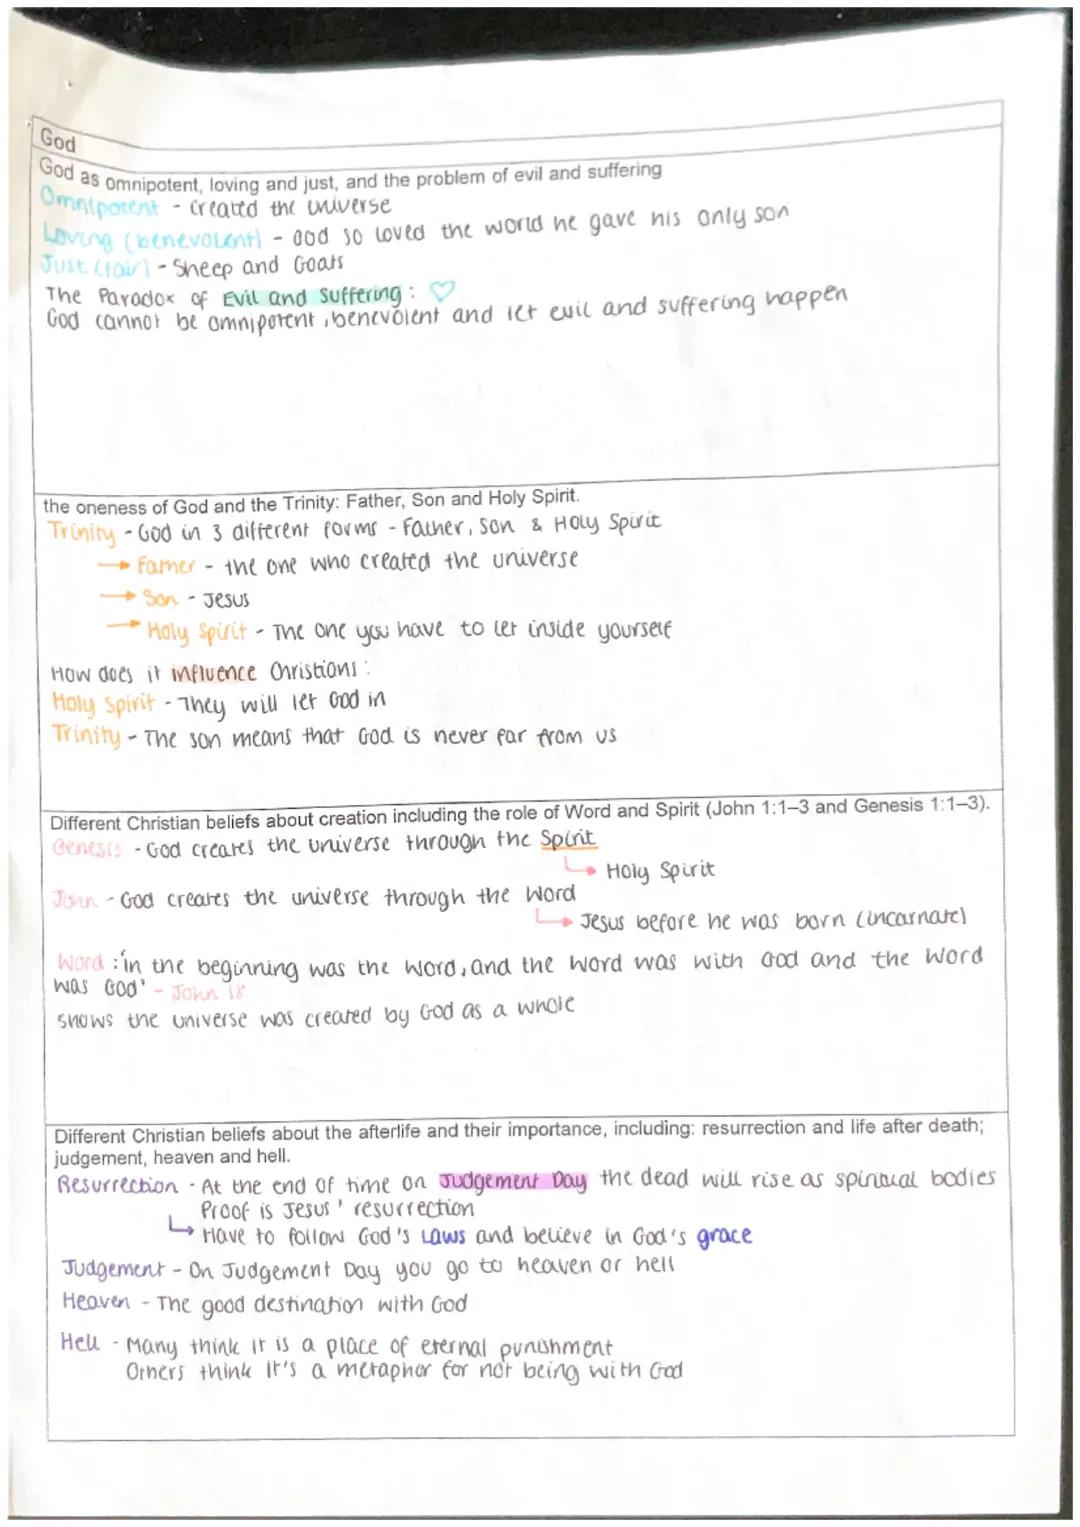 God
God as omnipotent, loving and just, and the problem of evil and suffering
Omnipotent - created the universe
Loving (benevolent) - God so loved the world he gave his only son
Just (fair) - Sheep and Goats
The Paradox of Evil and Suffering: ♡
God cannot be omnipotent, benevolent and let evil and suffering happen
the oneness of God and the Trinity: Father, Son and Holy Spirit.
Trinity - God in 3 different forms - Father, Son & Holy Spirit
→ Father - the one who created the universe
→ Son - Jesus
→ Holy Spirit - The one you have to let inside yourself
How does it influence Christians:
Holy Spirit - They will let God in
Trinity - The son means that God is never far from us
Different Christian beliefs about creation including the role of Word and Spirit (John 1:1–3 and Genesis 1:1–3).
Genesis - God creates the universe through the Spirit
↳ Holy Spirit
John - God creates the universe through the Word
↳ Jesus before he was born (incarnate)
Word: 'in the beginning was the Word, and the word was with God and the Word
was God' - John 18
shows the universe was created by God as a whole
Different Christian beliefs about the afterlife and their importance, including: resurrection and life after death;
judgement, heaven and hell.
Resurrection - At the end of time on Judgement Day the dead will rise as spiritual bodies
Proof is Jesus' resurrection
↳ Have to follow God's Laws and believe in God's grace
Judgement - On Judgement Day you go to heaven or hell
Heaven - The good destination with God
Hell - Many think it is a place of eternal punishment
Others think it's a metaphor for not being with God